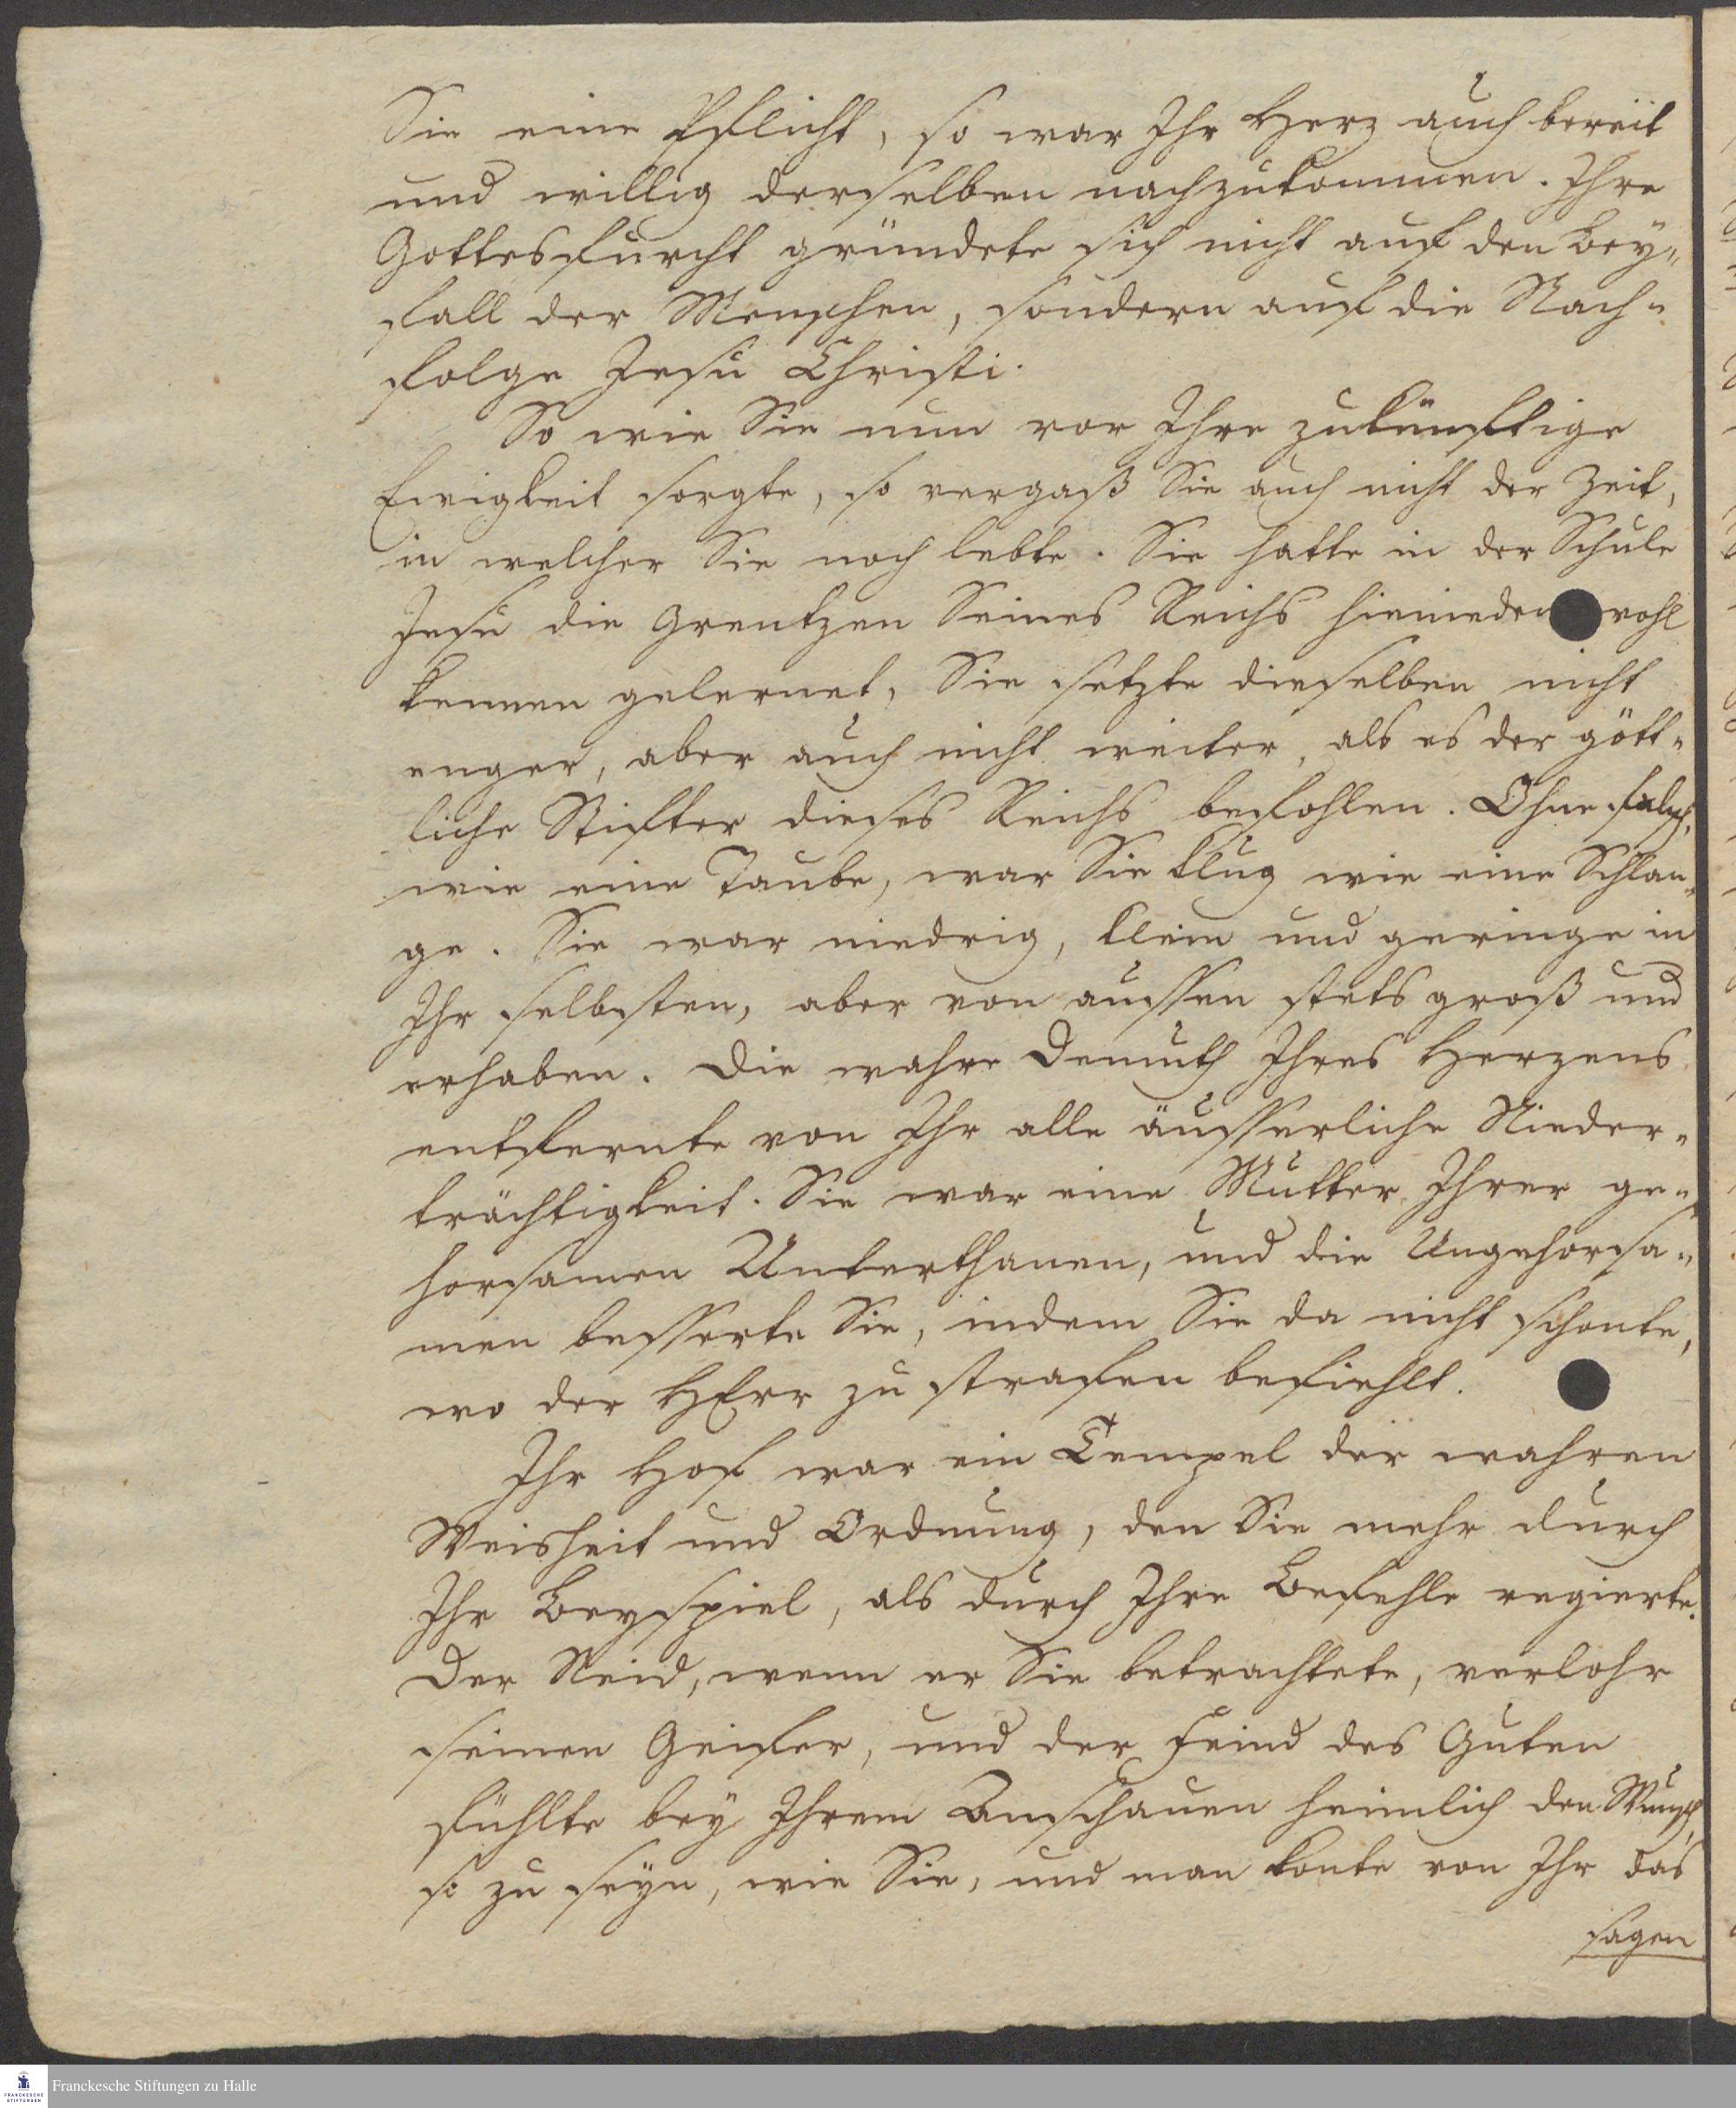 Sie eine Pflicht, so war Ihr Herz auch bereit
und willig derselben nachzukommen. Ihre
Gottesfurcht gründete sich nicht auf den Bey-
fall der Menschen, sondern auf die Nach-
folge Jesu Christi.
So wie Sie nun vor Ihre zukünftige
Ewigkeit sorgte, so vergaß Sie auch nicht der Zeit,
in welcher Sie noch lebte. Sie hatte in der Schule
Jesu die Grentzen Seines Reichs hienieden wohl
kennen gelernet, Sie setzte dieselben nicht
enger, aber auch nicht weiter, als es der gött-
liche Stifter dieses Reichs befohlen. Ohne falsch,
wie eine Taube, war Sie klug wie eine Schlan-
ge. Sie war niedrig, klein und geringe in
Ihr selbsten, aber von aussen stets groß und
erhaben. Die wahre Demuth Ihres Herzens
entfernte von Ihr alle äusserliche Nieder-
trächtigkeit. Sie war eine Mutter Ihrer ge-
horsamen Unterthanen, und die Ungehorsa-
men besserte Sie, indem Sie da nicht schonte,
wo der HErr zu strafen befiehlt.
Ihr Hof war ein Tempel der wahren
Weisheit und Ordnung, den Sie mehr durch
Ihr Beyspiel, als durch Ihre Befehle regierte.
Der Neid, wenn er Sie betrachtete, verlohr
seinen Geifer, und der Feind des Guten
fühlte bey Ihrem Anschauen heimlich den Wunsch,
so zu seyn, wie Sie, und man konte von Ihr das
sagen
Franckesche Stiftungen zu Halle
FRANCKESCHE
STIFTUNGEN